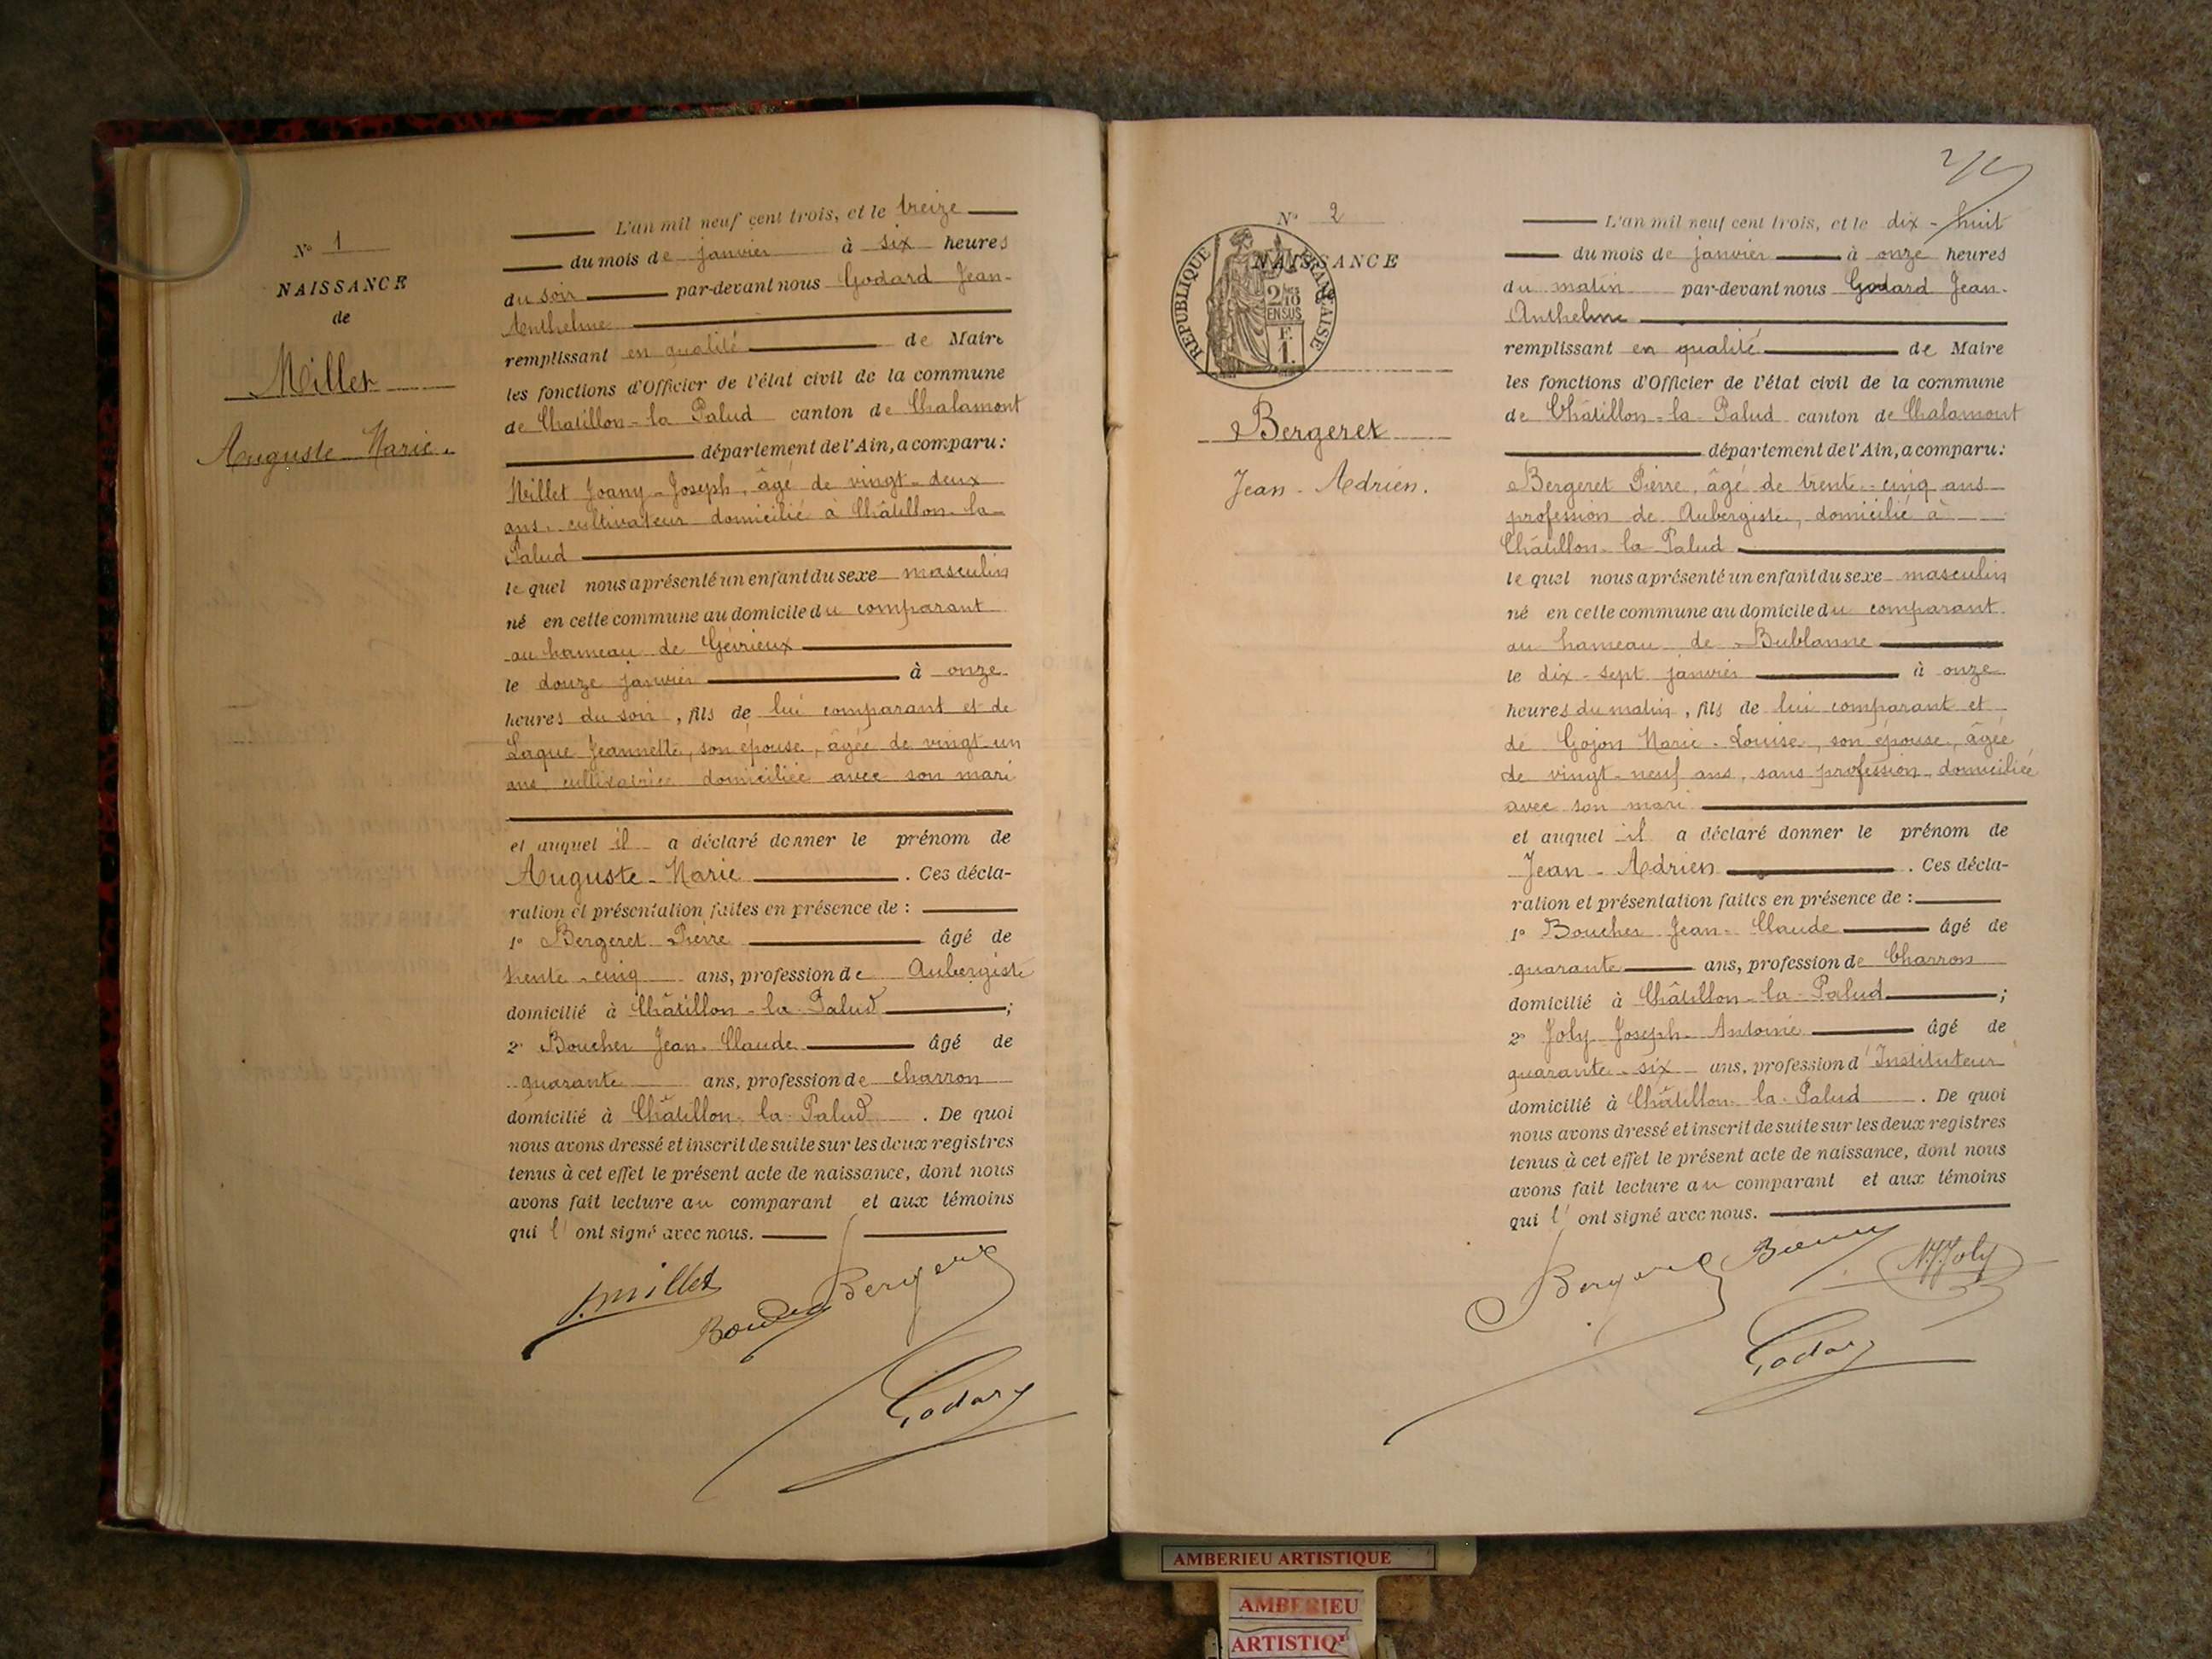 N° 1
NAISSANCE
de
Millet
Auguste-Marie.
L'an mil neuf cent trois, et le treize
du mois de janvier à six heures
du soir par-devant nous Godard Jean-
Anthelme
remplissant en qualité de Maire
les fonctions d'Officier de l'état civil de la commune
de Chatillon-la Palud canton de Chalamont
département de l'Ain, a comparu:
Millet Joany-Joseph, âgé de vingt-deux
ans, cultivateur domicilié à Châtillon-la-
Palud
le quel nous a présenté un enfant du sexe masculin
né en cette commune au domicile du comparant
au hameau de Gévrieux
le douze janvier à onze
heures du soir, fils de lui comparant et de
Laque Jeannette, son épouse, âgée de vingt-un
ans cultivatrice domiciliée avec son mari
et auquel il a déclaré donner le prénom de
Auguste-Marie. Ces décla-
ration et présentation faites en présence de:
1° Bergeret Pierre âgé de
trente-cinq ans, profession de Aubergiste
domicilié à Châtillon-la-Palud;
2° Boucher Jean-Claude âgé de
quarante ans, profession de charron
domicilié à Châtillon-la-Palud. De quoi
nous avons dressé et inscrit de suite sur les deux registres
tenus à cet effet le présent acte de naissance, dont nous
avons fait lecture au comparant et aux témoins
qui l'ont signé avec nous.
J. millet
Bergeret
Godard
N° 2
NAISSANCE
RÉPUBLIQUE FRANÇAISE
2/10
EN SUS
F.
1.
Bergeret
Jean-Adrien.
L'an mil neuf cent trois, et le dix-huit
du mois de janvier à onze heures
du matin par-devant nous Godard Jean-
Anthelme
remplissant en qualité de Maire
les fonctions d'Officier de l'état civil de la commune
de Châtillon-la-Palud canton de Chalamont
département de l'Ain, a comparu:
Bergeret Pierre, âgé de trente-cinq ans
profession de Aubergiste, domicilié à
Châtillon-la Palud
le quel nous a présenté un enfant du sexe masculin
né en cette commune au domicile du comparant
au hameau de Bublanne
le dix-sept janvier à onze
heures du matin, fils de lui comparant et
de Gojon Marie-Louise, son épouse, âgée
de vingt-neuf ans, sans profession, domiciliée
avec son mari
et auquel il a déclaré donner le prénom de
Jean-Adrien. Ces décla-
ration et présentation faites en présence de:
1° Boucher Jean-Claude âgé de
quarante ans, profession de Charron
domicilié à Châtillon-la-Palud;
2° Joly Joseph-Antoine âgé de
quarante-six ans, profession d'Instituteur
domicilié à Châtillon-la-Palud. De quoi
nous avons dressé et inscrit de suite sur les deux registres
tenus à cet effet le présent acte de naissance, dont nous
avons fait lecture au comparant et aux témoins
qui l'ont signé avec nous.
Bergeret
Joly
Godard
AMBERIEU ARTISTIQUE
AMBERIEU
ARTISTIQU